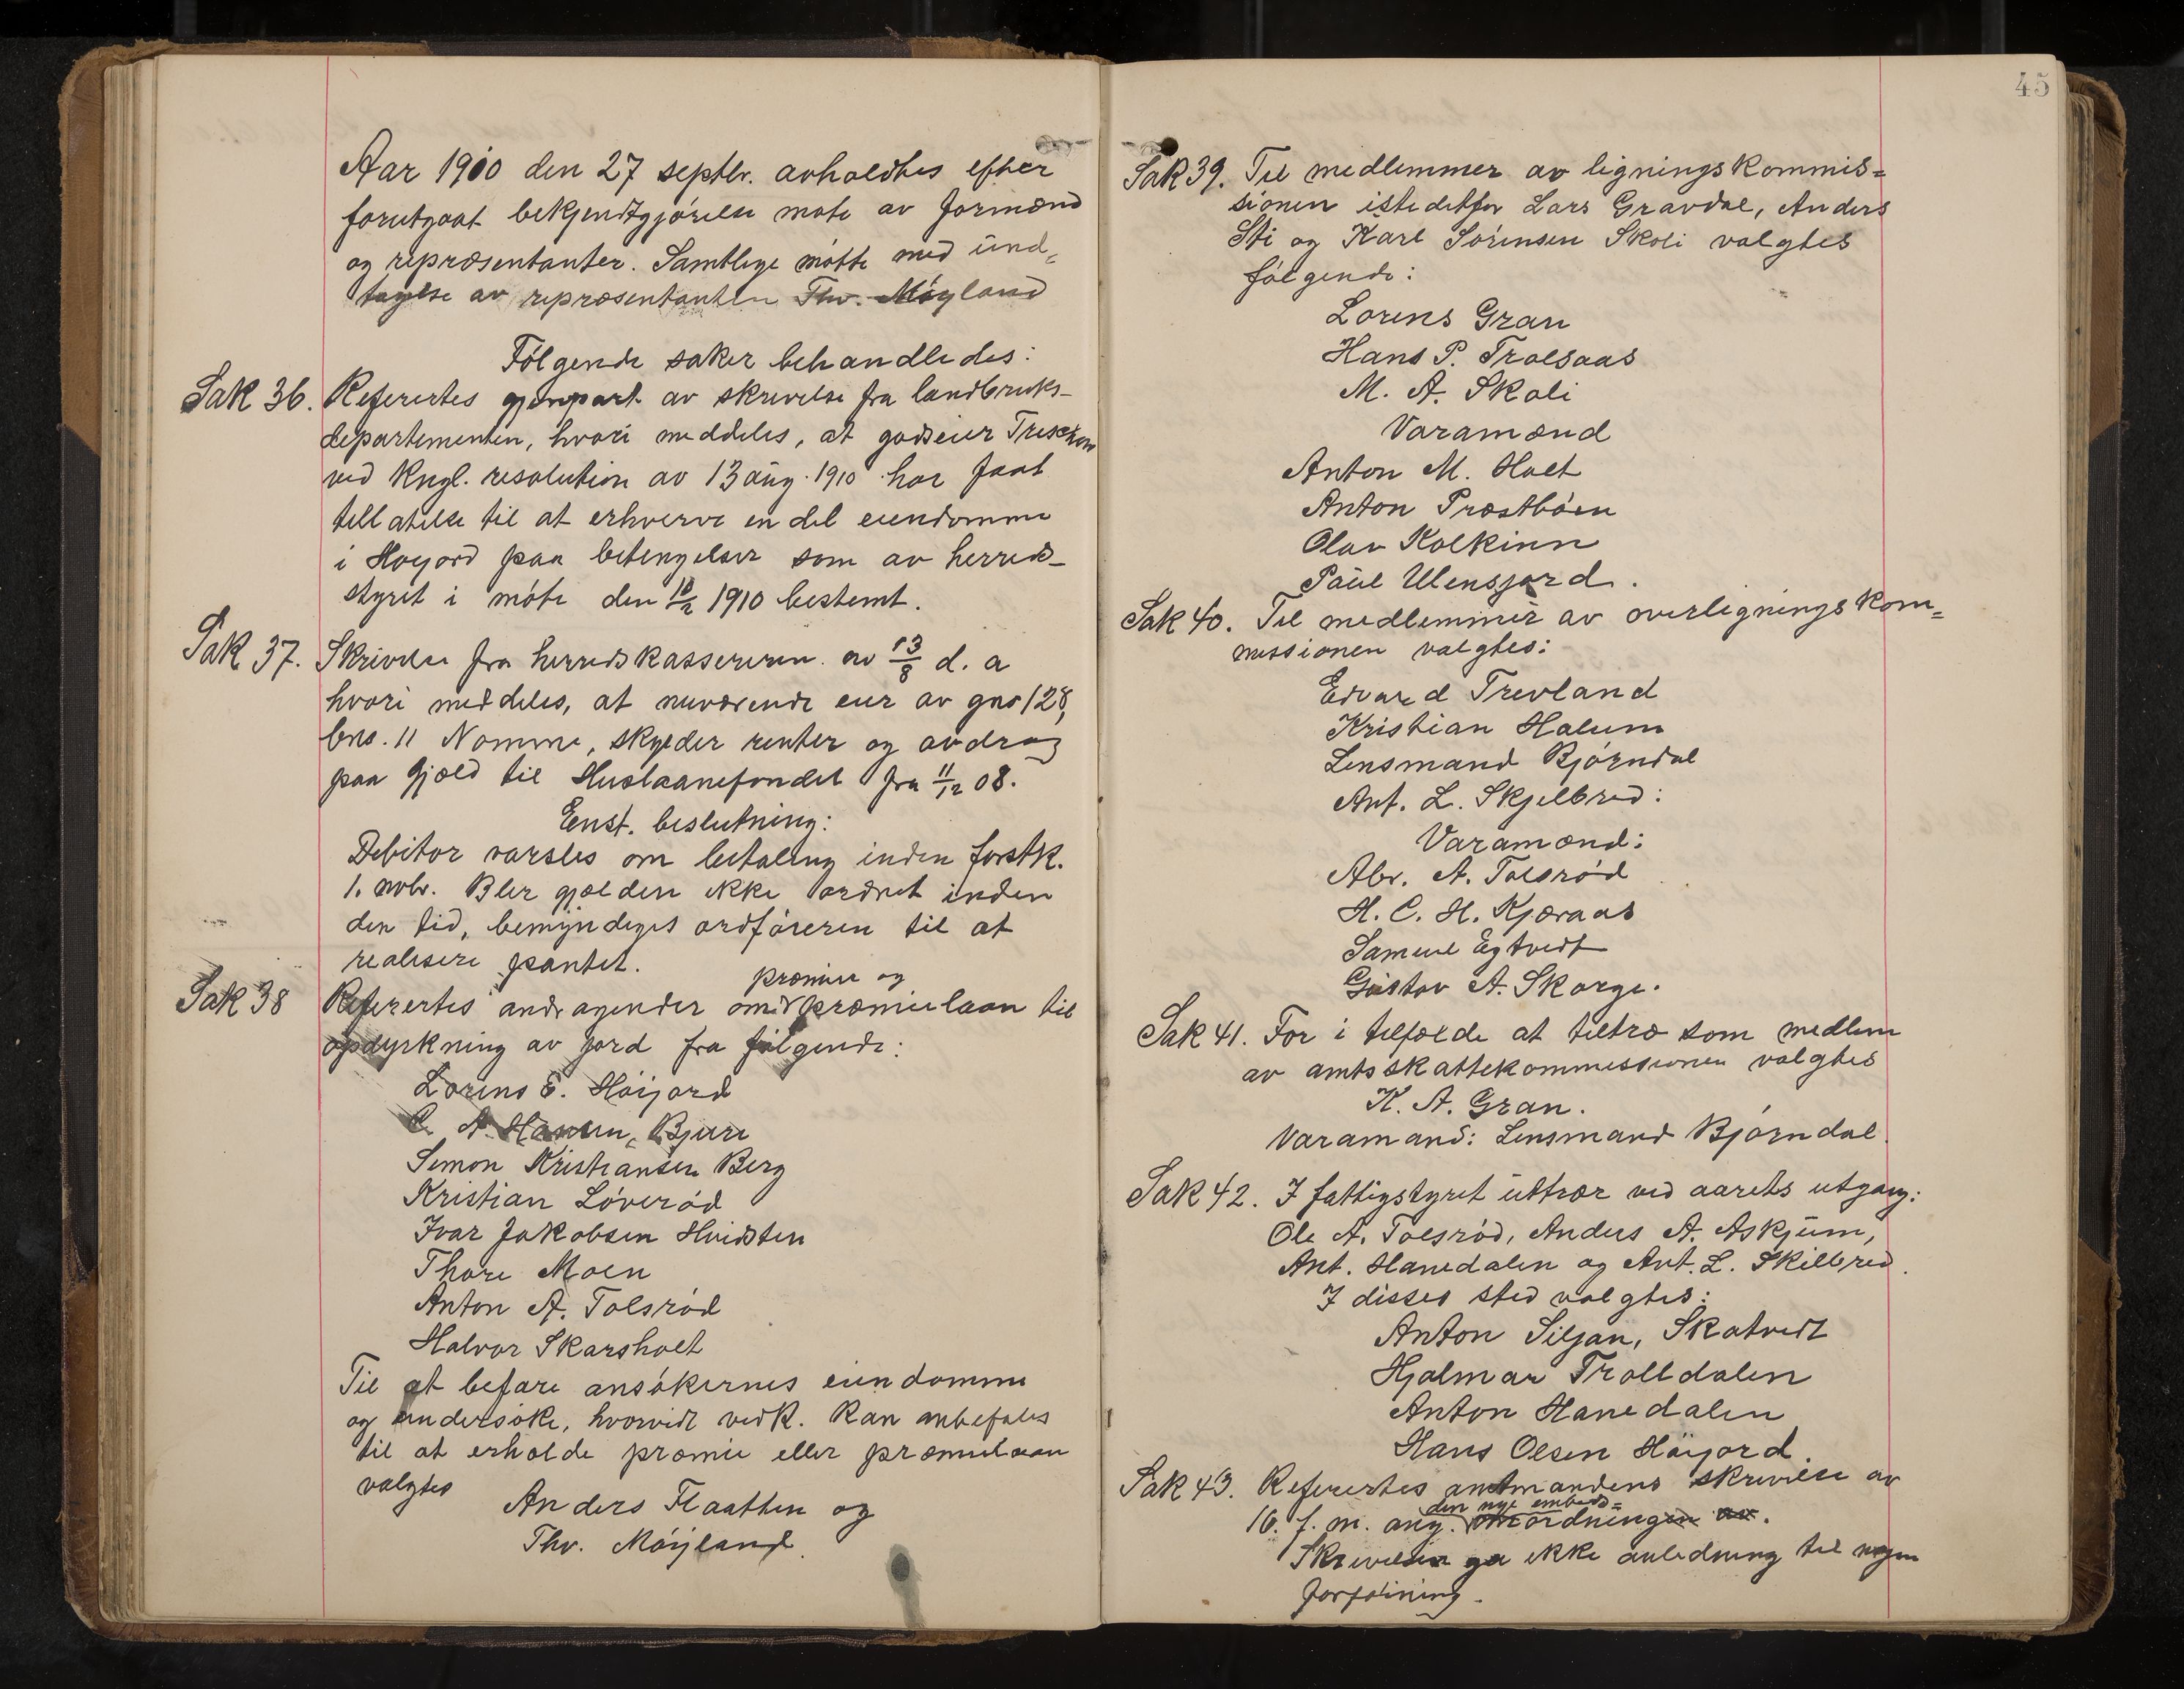 Aar 1910 den 27 septbr. avholdtes efter
forutgaat bekjendtgjørelse møte av formænd
og repræsentanter. Samtlige møtte med und-
tagelse av repræsentanten Thv. Møyland
Følgende saker behandledes:
Sak 36. Referertes gjenpart av skrivelse fra landbruks-
departementen, hvori meddeles, at godseier Treschow
ved kngl. resolution av 13 aug. 1910 har faat
tillatelse til at erhverve en del eiendomme
i Høyjord paa betingelser som av herreds-
styret i møte den 18/2 1910 bestemt.
Sak 37. Skrivelse fra herredskassereren av 13/8 d. a
hvori meddeles, at nuværende eier av gno 128,
bno. 11 Nomme, skylder renter og avdrag
paa gjæld til Huslaanefondet fra 11/12 08.
Enst. beslutning:
Debitor varsles om betaling inden førstk.
1. novbr. Blir gjælden ikke ordnet inden
den tid, bemyndiges ordføreren til at
realisere pantet.
præmie og
Sak 38 Referertes andragender om præmielaan til
opdyrkning av jord fra følgende:
Lorens E. Høijord
C. A. Hansen, Bjure
Simon Kristiansen Berg
Kristian Løverød
Ivar Jakobsen Hvidsten
Thore Moen
Anton A. Tolsrød
Halvor Skarsholt
Til at befare ansøkernes eiendomme
og undersøke, hvorvidt vedk. kan anbefales
til at erholde præmie eller præmielaan
valgtes
Anders Flaatten og
Thv. Møyland.
45
Sak 39. Til medlemmer av ligningskommis=
sionen istedetfor Lars Gravdal, Anders
Sti og Karl Sørensen Skoli valgtes
følgende:
Lorens Gran
Hans P. Trolsaas
M. A. Skoli
Varamænd
Anton M. Holt
Anton Præstbøen
Olav Kolkinn
Paul Ulensjord.
Sak 40. Til medlemmer av overligningskom=
missionen valgtes:
Edvard Trevland
Kristian Halum
Lensmand Bjørndal
Ant. L. Skjelbred:
Varamænd:
Abr. A. Tolsrød
H. C. H. Kjæraas
Samuel Egtvedt
Gustav A. Skorge.
Sak 41. For i tilfælde at tiltræ som medlem
av amtsskattekommissionen valgtes
K. A. Gran.
Varamand: Lensmand Bjørndal
Sak 42. I fattigstyret uttrær ved aarets utgang:
Ole A. Tolsrød, Anders A. Askjum,
Ant. Hanedalen og Ant. L. Skilbred.
I disses sted valgtes:
Anton Siljan, Skatvedt
Hjalmar Trolldalen
Anton Hanedalen
Hans Olsen Høijord.
Sak 43. Referertes amtmandens skrivelse av
den nye embeds=
16. f. m. ang. ordningen av.
Skrivelsen ga ikke anledning til nogen
forføining.